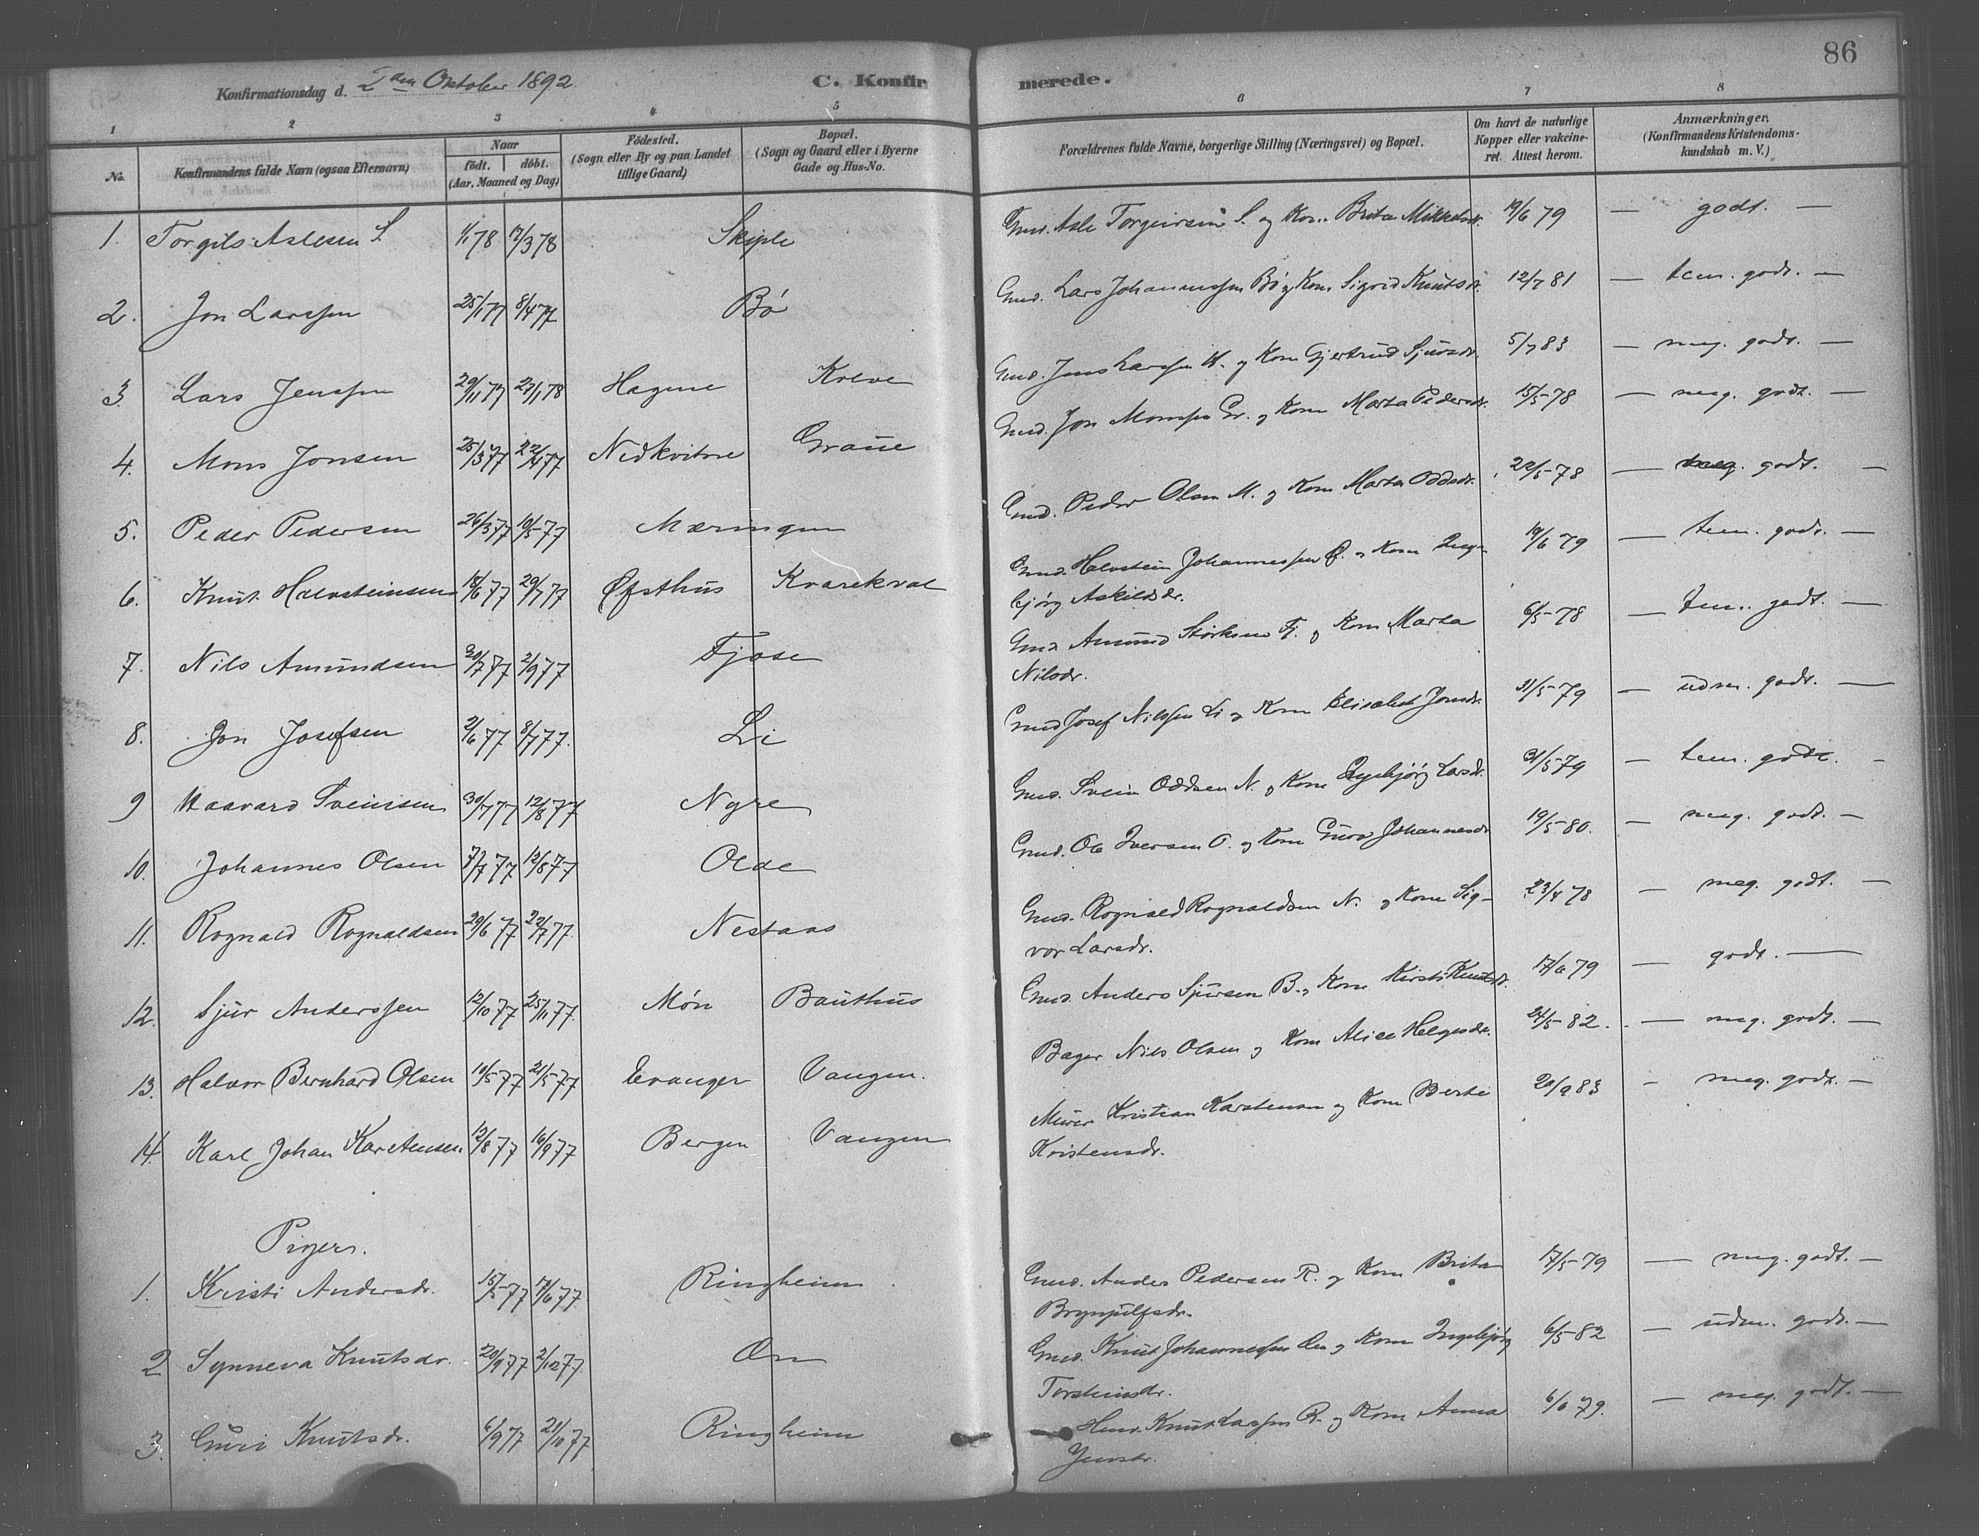 86
Konfirmationsdag d. 2den Oktober 1892.
C. Konfirmerede.
1 2 3 4 5 6 7 8
No. Konfirmandens fulde Navn (ogsaa Efternavn) Naar født. døbt. (Aar, Maaned og Dag) Fødested. (Sogn eller By og paa Landet tillige Gaard) Bopæl. (Sogn og Gaard eller i Byerne Gade og Hus-No. Forældrenes fulde Navne, borgerlige Stilling (Næringsvei) og Bopæl. Om havt de naturlige Kopper eller vakcineret. Attest herom. Anmærkninger. (Konfirmandens Kristendomskundskab m. V.)
1. Torgils Aslesen S. 1/1 78 17/3 78 Skiple Gmd. Asle Torgeirsen S. og Kone Brita Mikkelsdr. 19/6 79 — godt. —
2. Jon Larssen 25/1 77 8/4 77 Bø Gmd. Lars Johannessen Bø og Kone Sigrid Knutsd. 12/7 81 — tem. godt. —
3. Lars Jenssen 29/11 77 27/1 78 Hagene Kolve Gmd. Jens Larssen og Kone Gjertrud Sjursdr. 5/7 83 — meg. godt. —
4. Mons Jonsen 25/3 77 22/4 77 Nedkvitne Graue Gmd. Jon Monsen Gr. og Kone Marta Pedersdr. 15/5 78 — meg. godt. —
5. Peder Pedersen 26/3 77 10/5 77 Mæringen Gmd. Peder Olsen M. og Kone Marta Oddsdr. 22/5 78 — meg. godt. —
6. Knut Halvsteinsen 18/6 77 29/7 77 Øfsthus Kvarekval Gmd. Halvstein Johannessen Ø. og Kone Ingebjørg Askildsdr. 19/6 79 — tem. godt. —
7. Nils Amundsen 30/7 77 2/9 77 Fjose Gmd. Amund Størksen Fj. og Kone Marta Nilsdr. 6/5 78 — tem. godt. —
8. Jon Josefsen 2/6 77 8/7 77. Li Gmd. Josef Nilssen Li og Kone Elisabet Jonsdr. 31/5 79 — udm. godt. —
9 Haavard Sveinsen 30/7 77 12/8 77 Nyre Gmd. Svein Oddsen N. og Kone Ingebjørg Larsdr. 31/5 79 — tem. godt. —
10. Johannes Olsen 7/7 77 12/8 77 Olde Gmd. Ole Iversen O. og Kone Guro Johannesdr. 19/5 80. — meg. godt. —
11. Rognald Rognaldsen 29/6 77 22/7 77. Nestaas Gmd. Rognald Rognaldsen N. og Kone Sigvor Larsdr. 23/4 78 — meg. godt. —
12. Sjur Anderssen 12/10 77 25/11 77. Møn Bauthus Gmd. Anders Sjursen B. og Kone Kirsti Knutsdr. 17/6 79 — godt. —
13. Halvor Bernhard Olsen 10/5 77 21/5 77 Evanger Vangen. Bager Nils Olsen og Kone Alice Helgesdr. 24/5 82. — meg. godt. —
14. Karl Johan Karstensen 12/8 77 16/9 77 Bergen Vangen Murer Kristian Karstensen og Kone Berte Kristensdr. 20/9 83 — meg. godt. —
Piger.
1. Kristi Andersdr. 15/5 77 17/6 77 Ringheim Gmd. Anders Pedersen R. og Kone Brita Brynjulfsdr. 17/5 79 — meg. godt. —
2 Synneva Knutsdr. 20/9 77 2/12 77 On Gmd. Knut Johannessen On og Kone Ingebjørg Torsteinsdr. 6/5 82 — udm. godt. —
3. Guri Knutsdr. 6/9 77 21/10 77 Ringheim Hmd. Knut Larssen R. og Kone Anna Jensdr. 6/6 79. — meg. godt. —